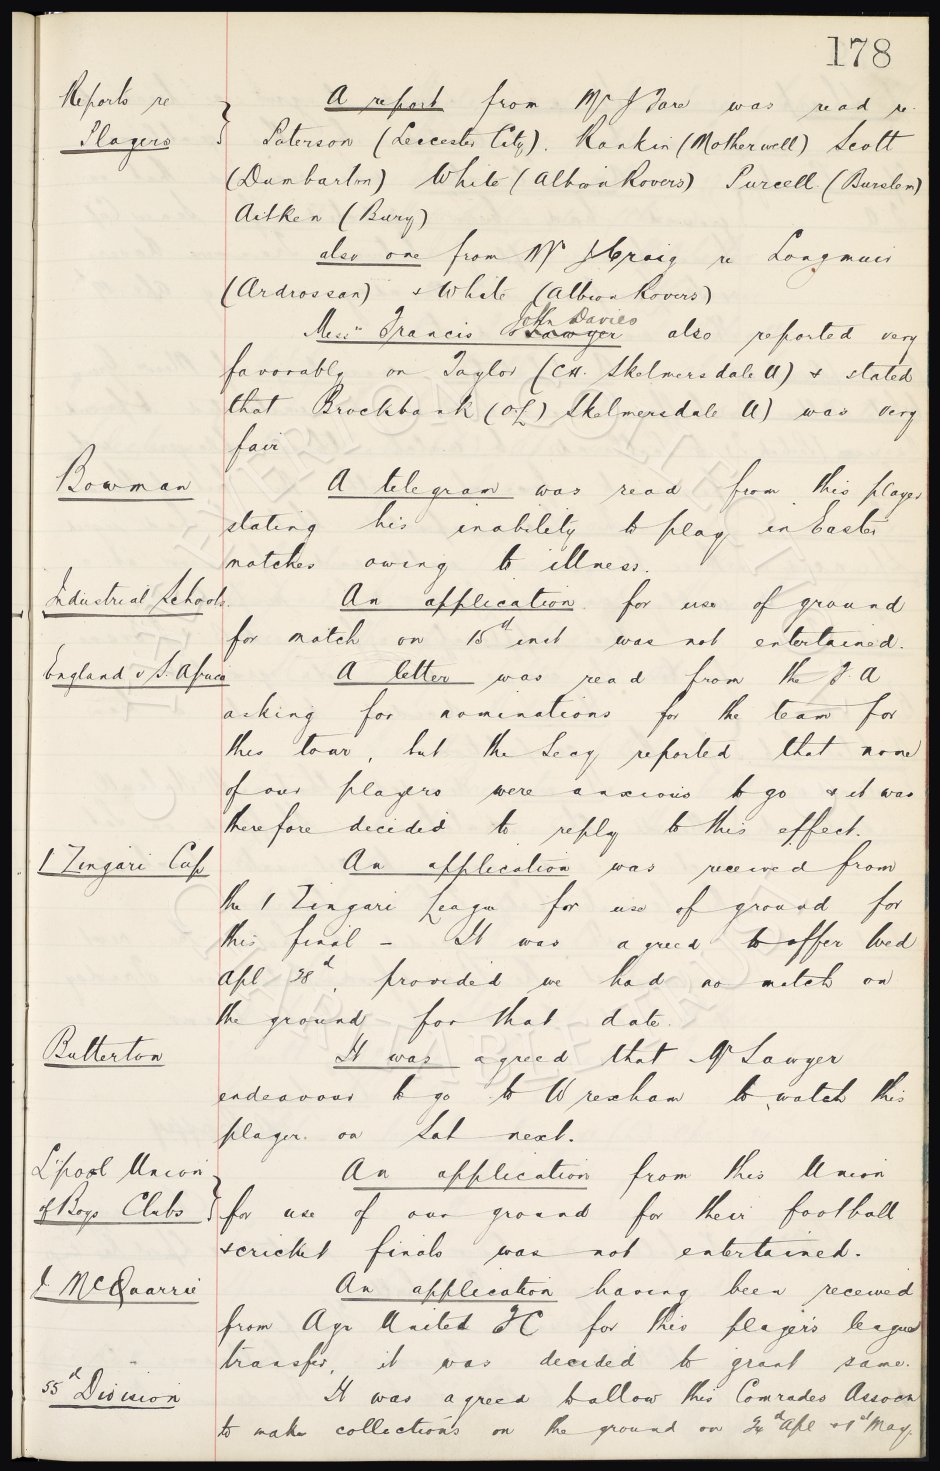 178
Reports re
Players
A report from Mr J Fare was read re
Paterson (Leicester City). Rankin (Motherwell) Scott
(Dumbarton) White (Albion Rovers) Purcell (Burslem)
Aitken (Bury)
also one from Mr J Craig re Longmuir
(Ardrossan) & White (Albion Rovers)
John Davies
Messrs Francis & Sawyer also reported very
favorably on Taylor (CH. Skelmersdale U) & stated
that Brockbank (OL) Skelmersdale U) was very
fair
Bowman
A telegram was read from this player
stating his inability to play in Easter
matches owing to illness.
Industrial Schools.
An application for use of ground
for match on 15th inst was not entertained.
England v S. Africa
A letter was read from the F.A
asking for nominations for the team for
this tour, but the Secy reported that none
of our players were anxious to go & it was
therefore decided to reply to this effect.
1 Zingari Cup
An application was received from
the 1 Zingari League for use of ground for
this final - It was agreed to offer Wed
Apl 28th, provided we had no match on
the ground for that date.
Butterton
It was agreed that Mr Sawyer
endeavour to go to Wrexham to watch this
player on Sat next.
L'pool Union
of Boys Clubs
An application from this Union
for use of our ground for their football
& cricket finals was not entertained.
J McQuarrie
An application having been received
from Ayr United FC for this player's league
transfer, it was decided to grant same.
55th Division
It was agreed to allow this Comrades Assocn
to make collections on the ground on 24th Apl & 1st May.